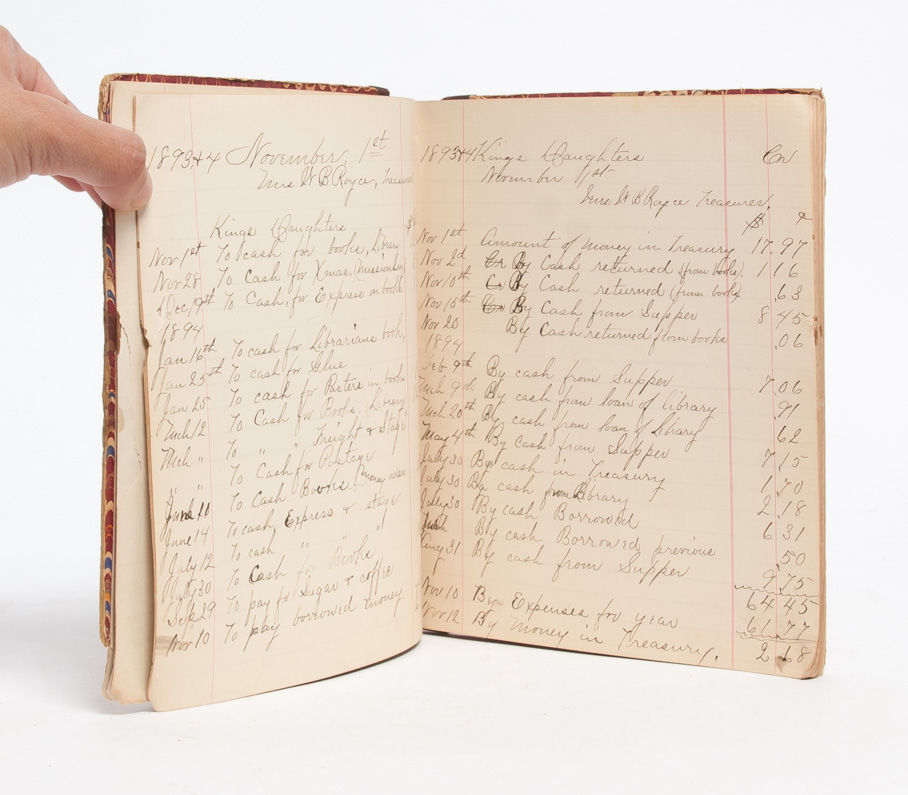 1893+4 November 1st
Mrs W B Royce, Treasurer
Kings Daughters
Nov 1st To cash for books, Library
Nov 28 To Cash for Xmas,
Dec 19th To Cash, for Express on books
1894
Jan 16th To cash for Librarians book,
Jan 25th To cash for Glue
Jan 25 To cash for in books
Mch 12 To Cash for Books, Library
Mch " To " " Freight & Stage
" " To Cash for Postage
June 10 To Cash Books, Money order
June 14 To cash Express & stage
July 12 To cash " " "
July 30 To Cash for Books
Sept 29 To pay for Sugar & coffee
Nov 10 To pay borrowed money
1893+4 Kings Daughters Cr
November 1st
Mrs W B Royce Treasurer,
$
Nov 1st Amount of Money in Treasury 17 97
Nov 2d Cr By Cash returned (from books) 1 16
Nov 10th Cr By Cash returned (from books) .63
Nov 15th Cr By Cash from Supper 8 45
Nov 20 By Cash returned from books .06
1894
Feb 9th By cash from Supper 7 06
Mch 9th By cash from loan of library 91
Mch 20th By cash from loan of Library 62
May 4th By Cash from Supper 7 15
July 30 By cash in Treasury 1 70
July 30 By cash from Library 2 18
July 30 By cash Borrowed 6 31
By cash Borrowed previous .50
Aug 31 By cash from Supper 9 75
64 45
Nov 10 By Expenses for year 61 77
Nov 12 By Money in Treasury. 2 68